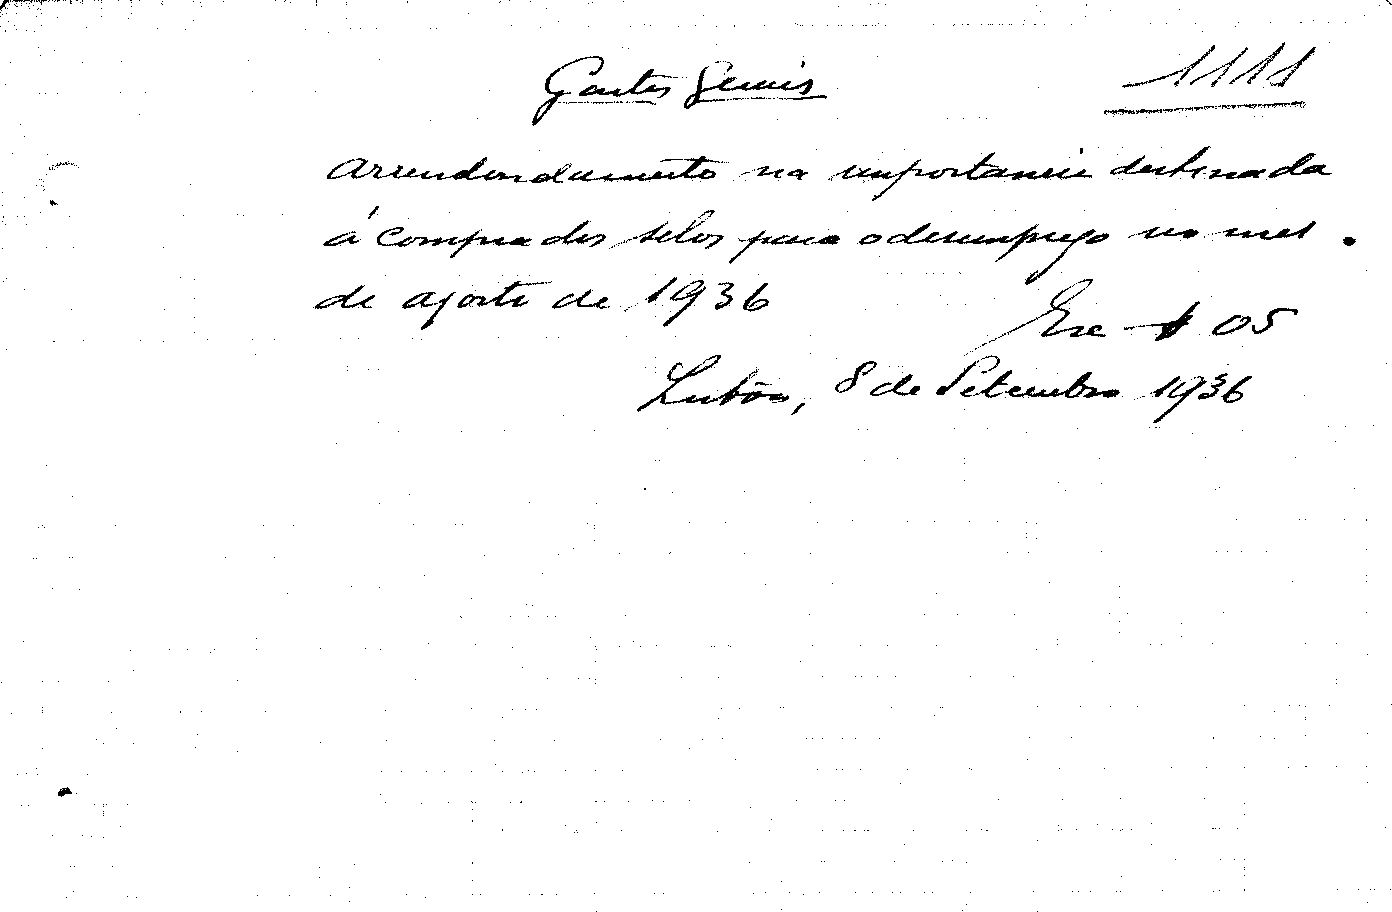 Gastos Gerais
1111
Arrendondamento na importancia destinada
á compra dos selos para o desemprego no mes
de agosto de 1936
Esc $05
Lisbôa, 8 de Setembro 1936